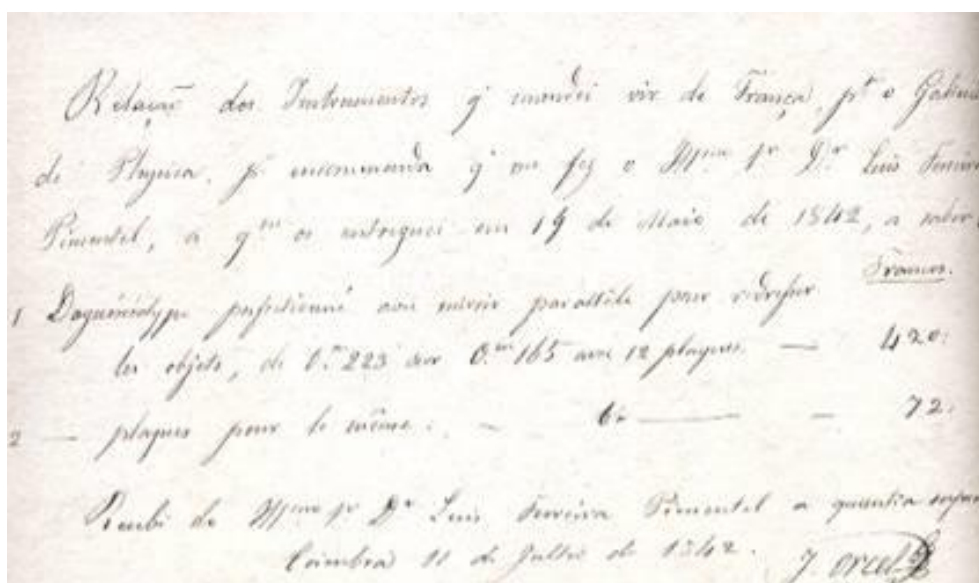 Relação dos Instrumentos q' mandei vir de França, pª o Gabine
de Physica, pr encommenda q' me fez o Illmo Sr Dr Luis Ferreira
Pimentel, a qm os entreguei em 19 de Maio de 1842, a saber,
Francos.
1 Daguérréotype perfectionné avec miroir parallèle pour redresser
les objets, de 0.m 223 sur 0.m 165 avec 12 plaques — 420.
2 — plaques pour le même. — — — 72.
Recebi do Illmo Sr Dr Luis Ferreira Pimentel a quantia supra
Coimbra 11 de Julho de 1842. J. Orcel